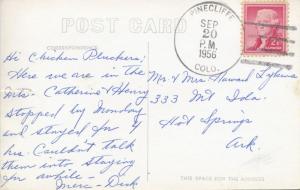 POST CARD
CORRESPONDENCE
PINECLIFFE
SEP
20
P.M.
1956
COLO.
2¢
Hi Chicken Pluckers:
Here we are in the
. Catherine & Henry
stopped by Monday
and stayed for 4
hrs. Couldn't talk
them into staying
in awhile -
Merc - Dick
Mr & Mrs Howard
333 Mt Ida
Hot Springs
Ark.
THIS SPACE FOR THE ADDRESS